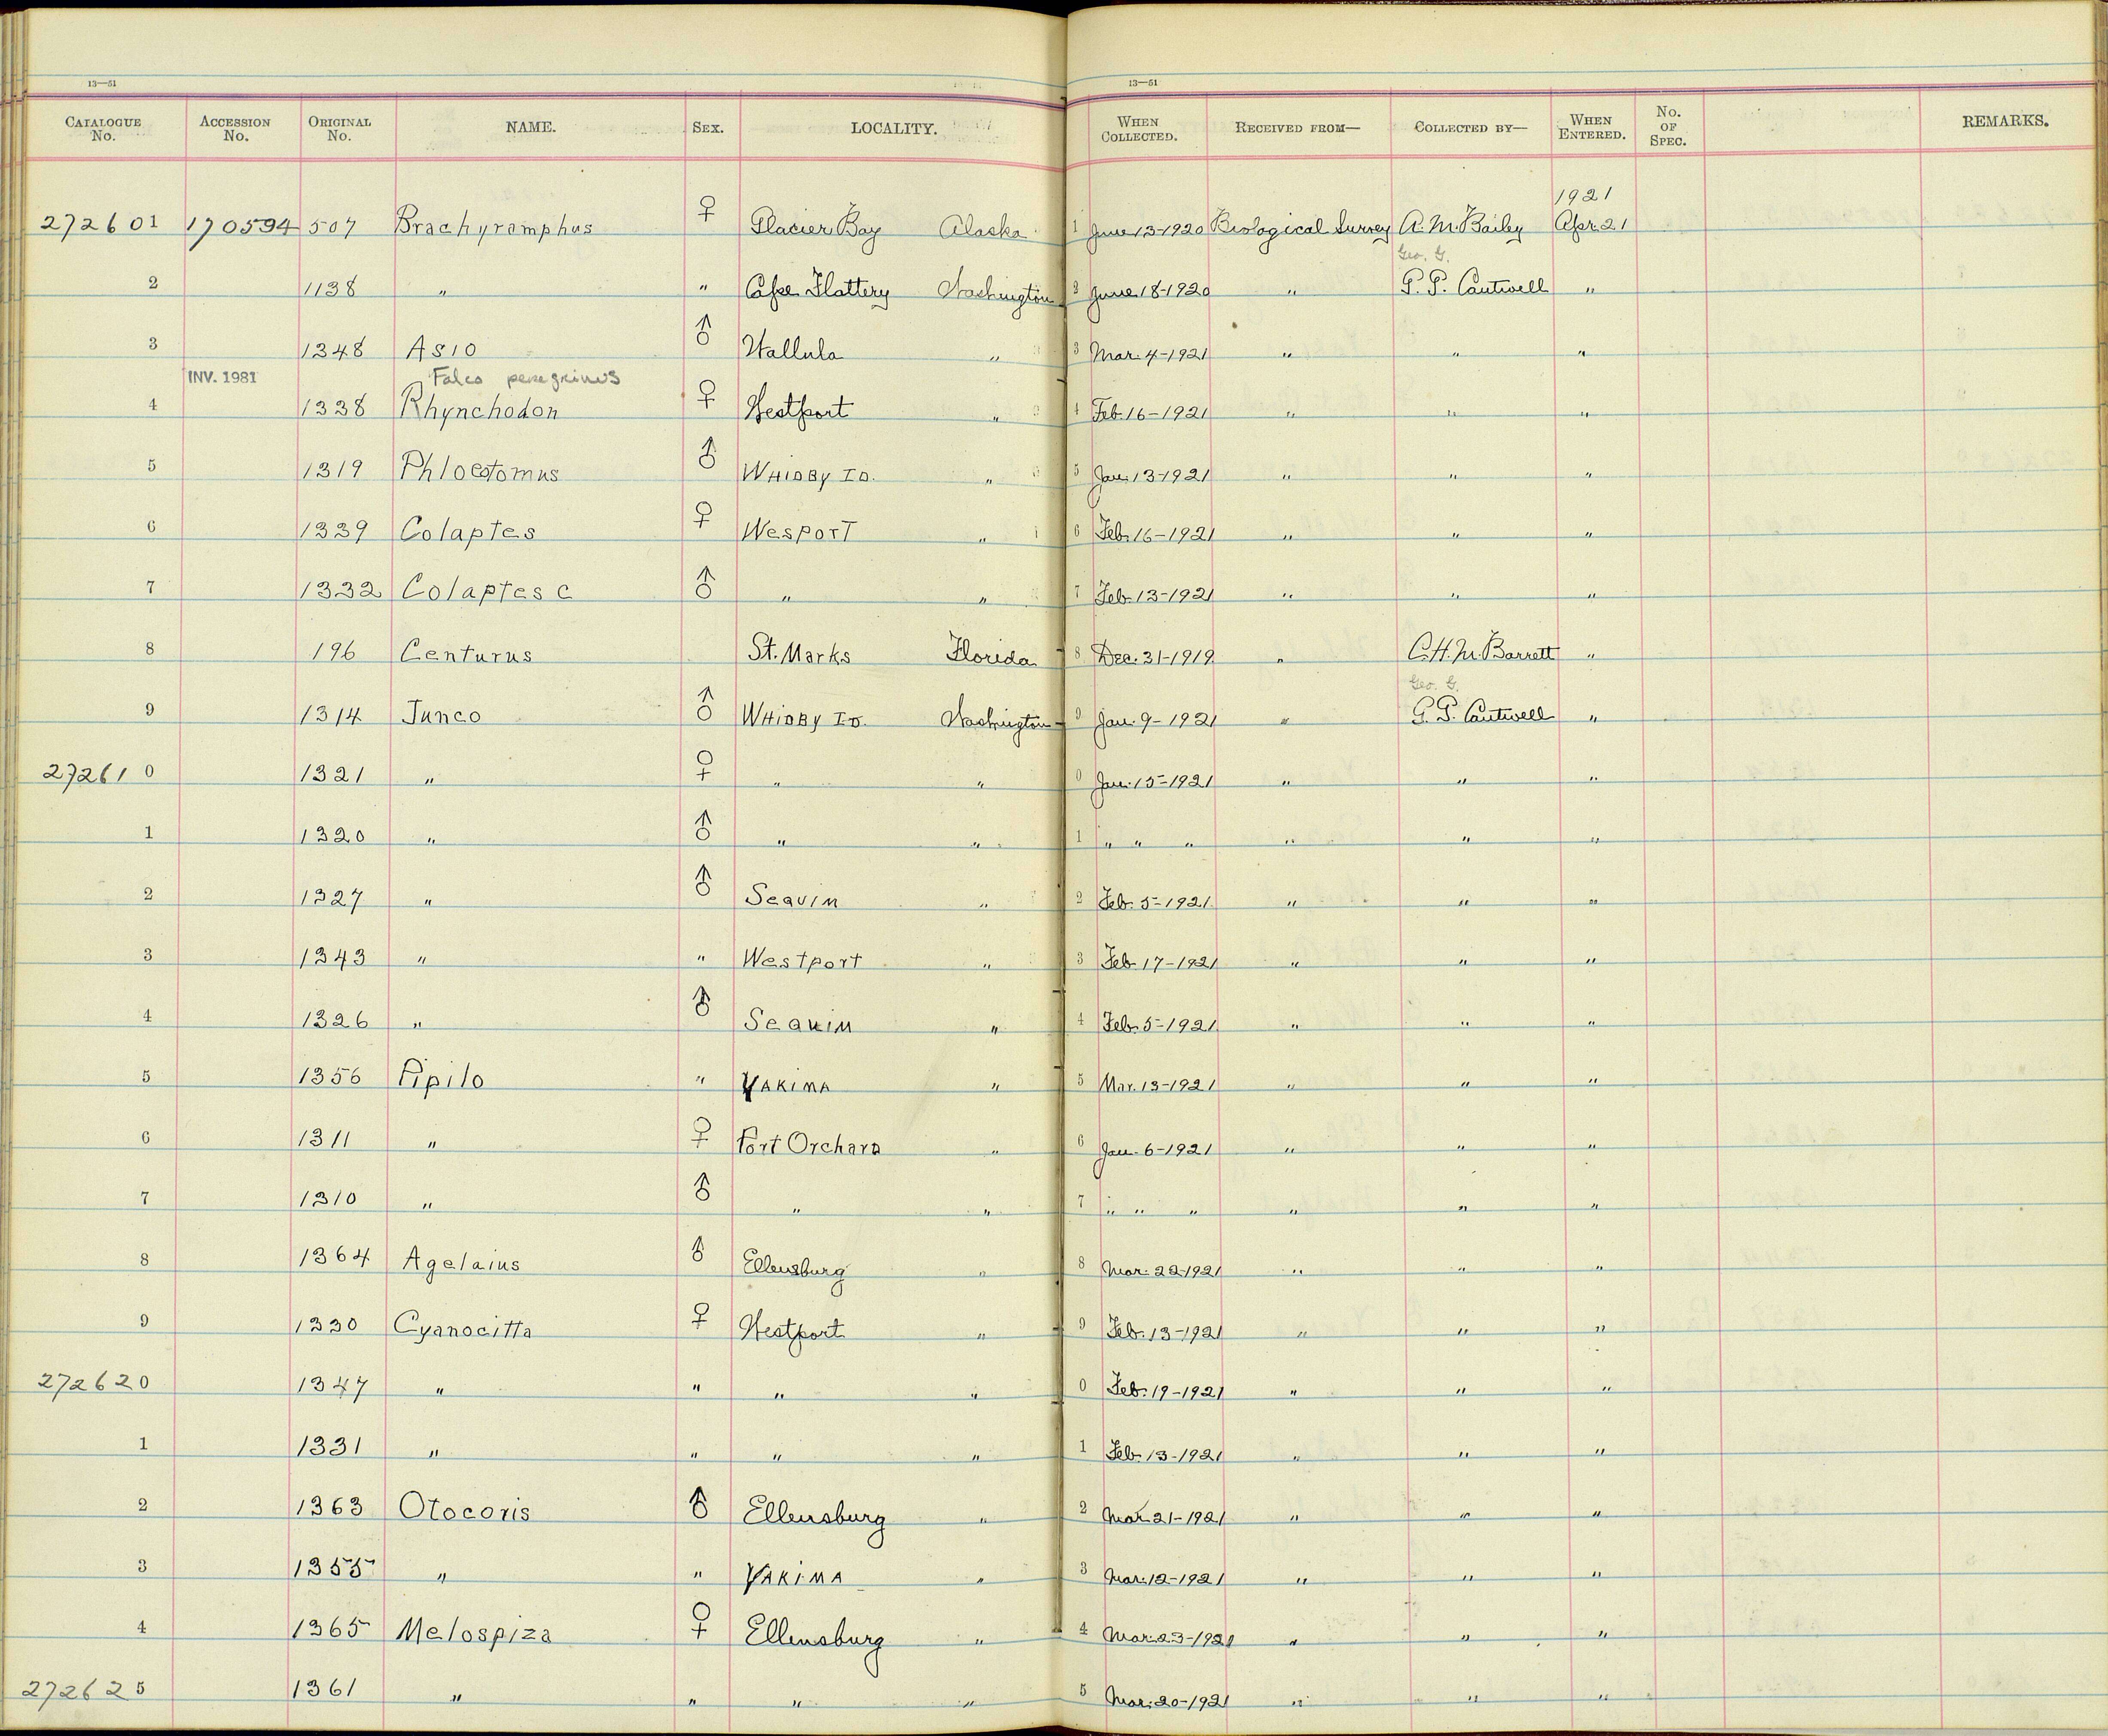 13—51 13—51
CATALOGUE No. ACCESSION No. ORIGINAL No. NAME. SEX. LOCALITY. WHEN COLLECTED. RECEIVED FROM— COLLECTED BY— WHEN ENTERED. No. OF SPEC. REMARKS.
1921
272601 170594 507 Brachyramphus ♀ Glacier Bay Alaska 1 June 13-1920 Biological Survey A. M. Bailey Apr. 21
Geo. G.
2 1138 " " Cape Flattery Washington 2 June 18-1920 " G. G. Cantwell "
3 1348 Asio ♂ Wallula " 3 Mar. 4-1921 " " "
INV. 1981 Falco peregrinus
4 1338 Rhynchodon ♀ Westport " 4 Feb. 16-1921 " " "
5 1319 Phloeotomus ♂ WHIDBY ID. " 5 Jan. 13-1921 " " "
6 1339 Colaptes ♀ WesporT " 6 Feb. 16-1921 " " "
7 1332 Colaptes c ♂ " " 7 Feb. 13-1921 " " "
8 196 Centurus St. Marks Florida 8 Dec. 31-1919 " C. H. M. Barrett "
Geo. G.
9 1314 Junco ♂ WHIDBY ID. Washington 9 Jan. 9-1921 " G. G. Cantwell "
272610 1321 " ♀ " " 0 Jan. 15-1921 " " "
1 1320 " ♂ " " 1 " " " " " "
2 1327 " ♂ Sequim " 2 Feb. 5-1921 " " "
3 1343 " " Westport " 3 Feb. 17-1921 " " "
4 1326 " ♂ Sequim " 4 Feb. 5-1921 " " "
5 1356 Pipilo " YAKIMA " 5 Mar. 13-1921 " " "
6 1311 " ♀ Port Orchard " 6 Jan. 6-1921 " " "
7 1310 " ♂ " " 7 " " " " " "
8 1364 Agelaius ♂ Ellensburg " 8 Mar. 22-1921 " " "
9 1330 Cyanocitta ♀ Westport " 9 Feb. 13-1921 " " "
272620 1347 " " " " 0 Feb. 19-1921 " " "
1 1331 " " " " 1 Feb. 13-1921 " " "
2 1363 Otocoris ♂ Ellensburg " 2 Mar. 21-1921 " " "
3 1355 " " YAKIMA " 3 Mar. 12-1921 " " "
4 1365 Melospiza ♀ Ellensburg " 4 Mar. 23-1921 " " "
272625 1361 " " " " 5 Mar. 20-1921 " " "